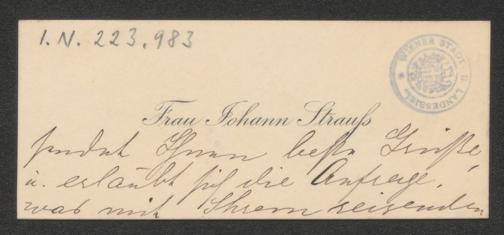 I. N. 223.983
WIENER STADT U. LANDESBIBL.
Frau Johann Strauß
sendet Ihnen beste Grüße,
u. erlaubt sich die Anfrage,
was mit Ihrem reisenden